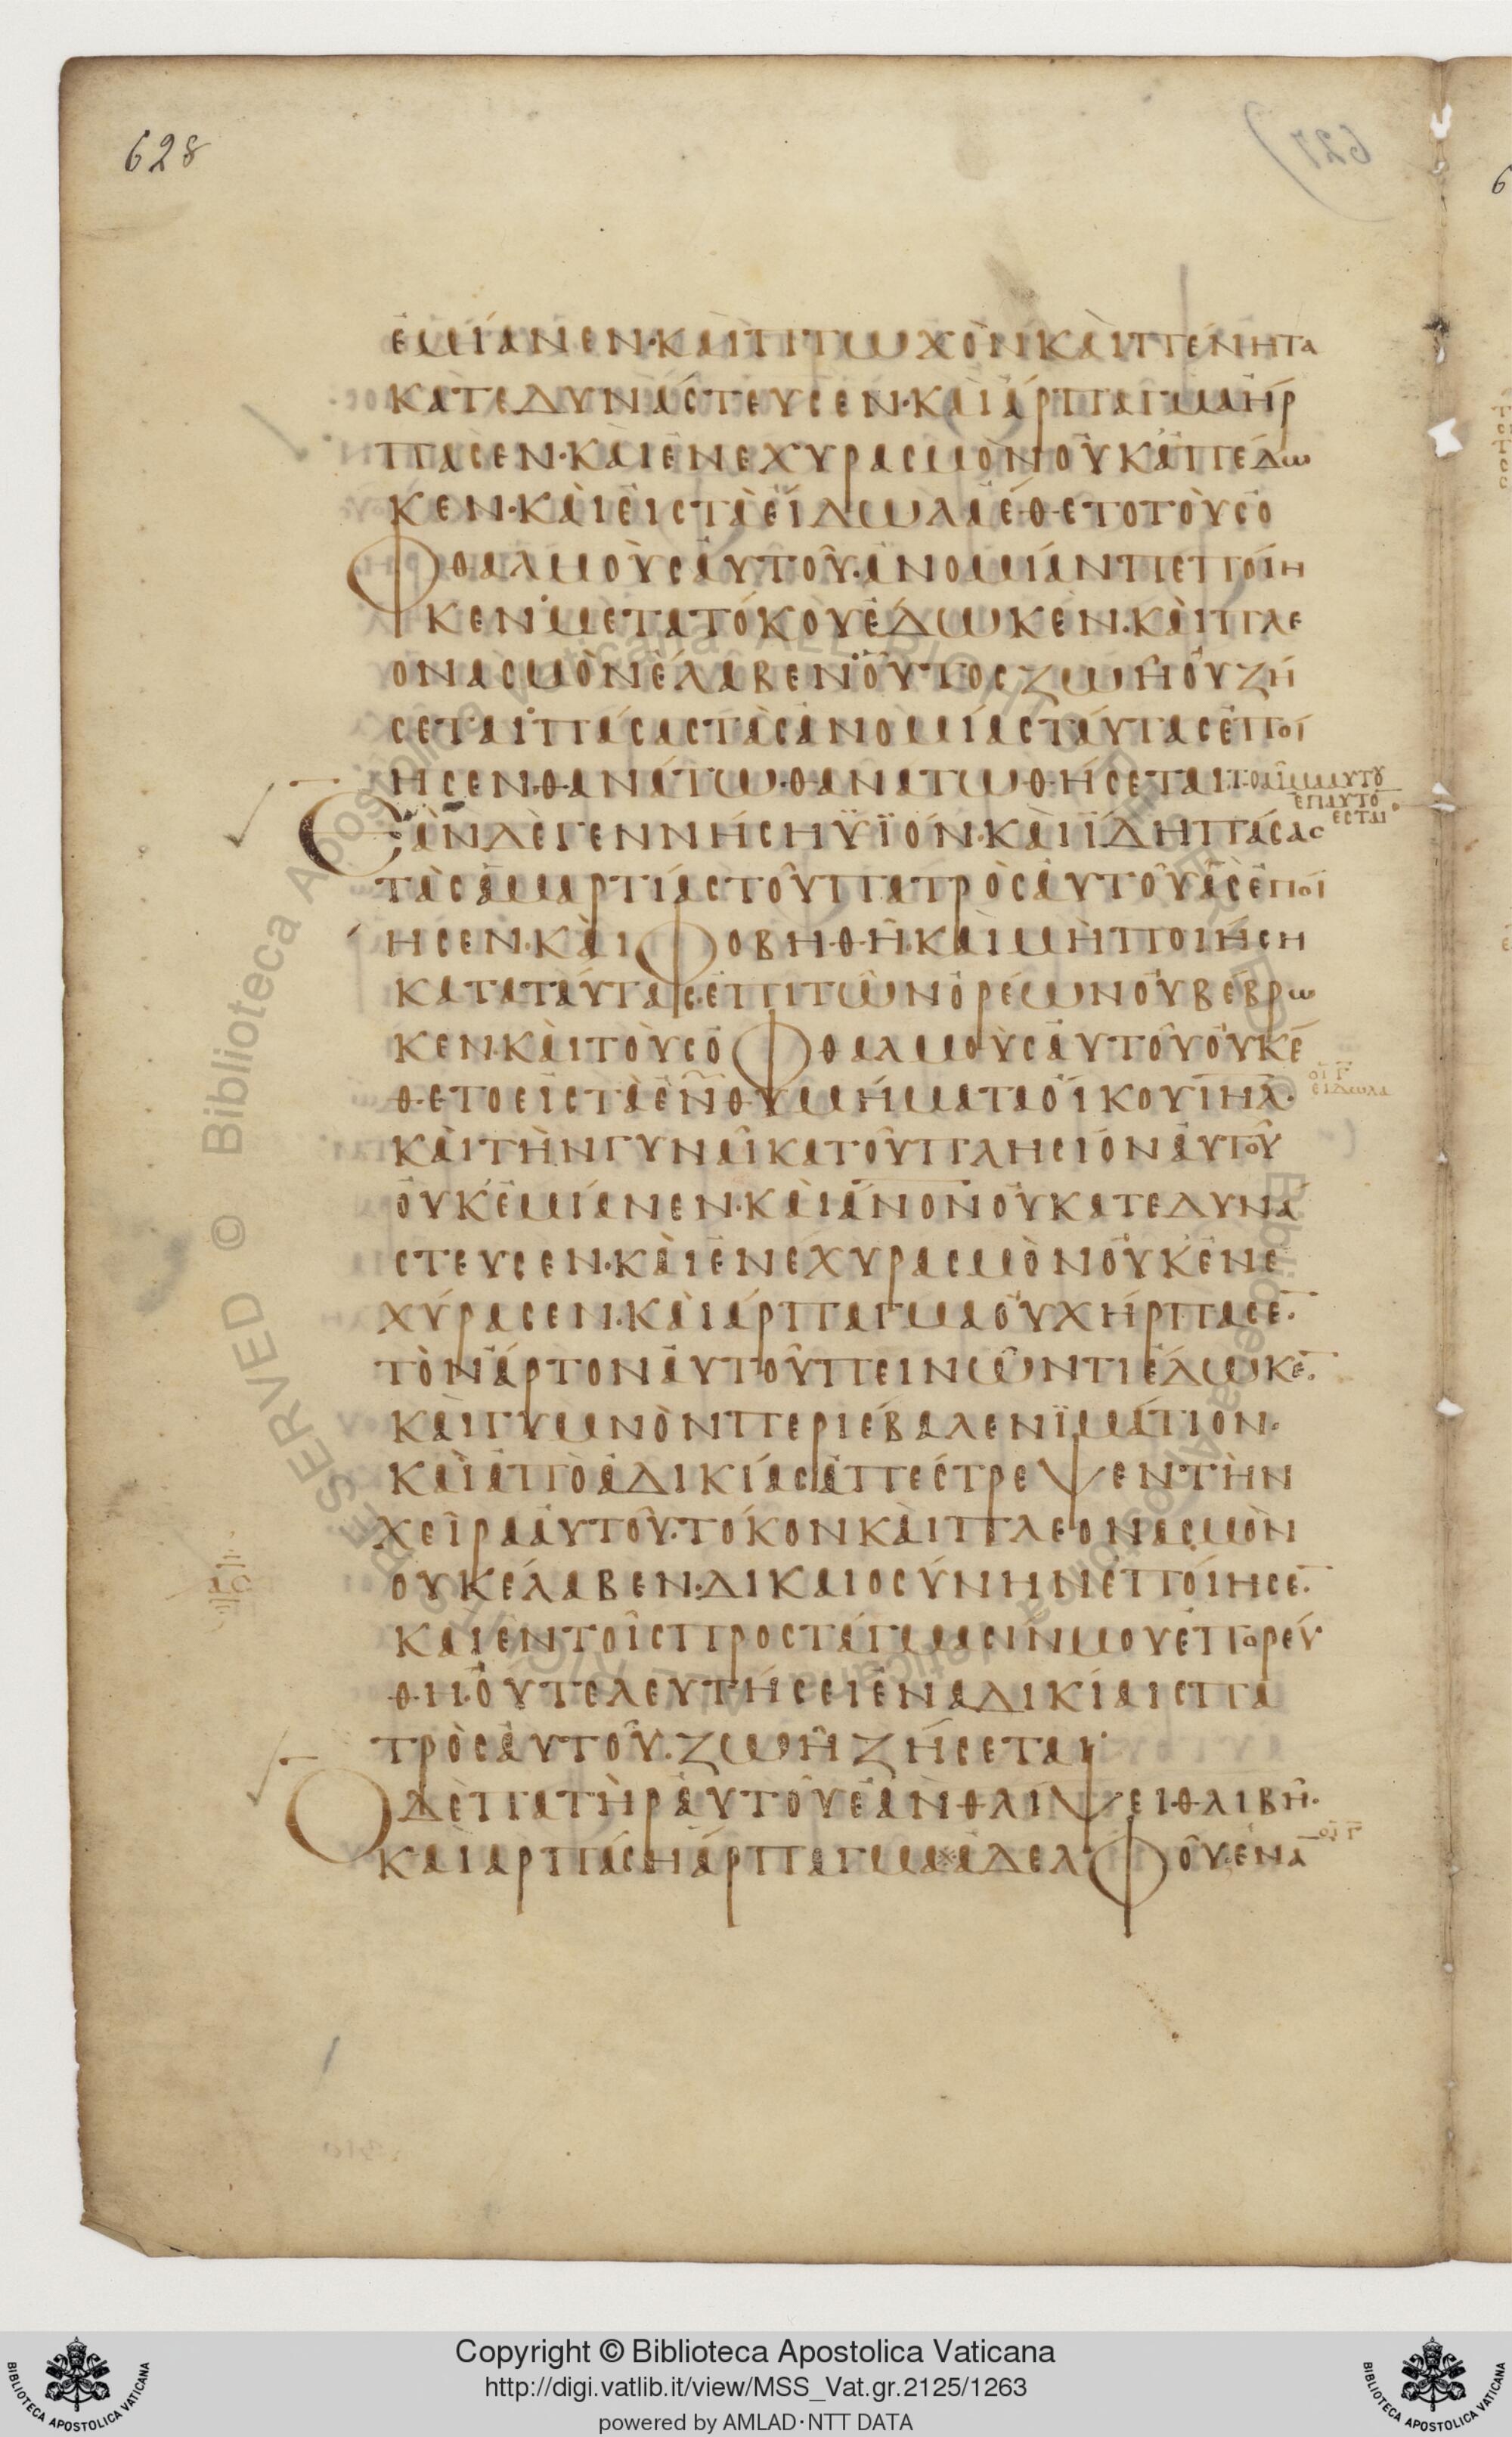 628
627
ἐμίανεν·καὶπτωχὸνκαὶπένητα
κατεδυνάστευσεν·καὶἅρπαγμαἥρ
πασεν·καὶἐνεχυρασμὸνοὐκἀπέδω
κεν·καὶεἰςτὰεἴδωλαἔθετοτοὺςὀ
φθαλμοὺςαὐτοῦ·ἀνομίανπεποίη
κενμετατόκουἔδωκεν·καὶπλε
ονασμὸνἔλαβενοὗτοςζωῆοὐζή
σεταιπάσαςτὰςἀνομίαςταύταςἐποί
ησεν·θανάτωθανατωθήσεταιτοαἷμααυτου
επαυτὸ
εσται
Ἐὰνδὲγεννήσηϋϊόν·καὶϊδηπάσας
τὰςἁμαρτίαςτοῦπατρὸςαὐτοῦἃςἐποί
ησεν·καὶφοβηθῆ·καὶμὴποιήση
καταταύτας·ἐπιτῶνὀρέωνοὐβέβρω
κεν·καὶτοὺςὀφθαλμοὺςαὐτοῦοὐκἔ
θετοεἰςτὰἐνθυμήματαοἴκουιηλ·
οι γ
ειδωλα
καὶτὴνγυναῖκατοῦπλησίοναὐτοῦ
οὐκἐμίανεν·καὶἄνονοὐκατεδυνά
στευσεν·καὶἐνεχυρασμὸνοὐκἐνε
χύρασεν·καὶἅρπαγμαοὐχἥρπασε̄·
τὸνἄρτοναὐτοῦπεινῶντιἔδωκε̄·
καὶγυμνὸνπεριέβαλενϊμάτιον·
καὶἀπὸἀδικίαςἀπέστρεψεντὴν
χεῖρααὐτοῦ·τόκονκαὶπλεονασμὸν
ουκέλαβεν·δικαιοσύνηνἐποίησε̄·
καιἐντοῖςπροστάγμασίνμουἐπορεύ
θη·οὐτελευτήσειἐναδικίαιςπα
τρὸςαὐτοῦ·ζωῆζήσεται
Ὁδὲπατὴραὐτοῦἐὰνθλίψειθλιβῆ·
καὶαρπάσηἅρπαγμα※ἀδελφοῦ·ἐνα
οι γ
Copyright © Biblioteca Apostolica Vaticana
http://digi.vatlib.it/view/MSS_Vat.gr.2125/1263
powered by AMLAD·NTT DATA
BIBLIOTECA APOSTOLICA VATICANA
BIBLIOTECA APOSTOLICA VATICANA